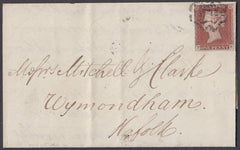 Messrs Mitchell & Clarke
Wymondham.
Norfolk.